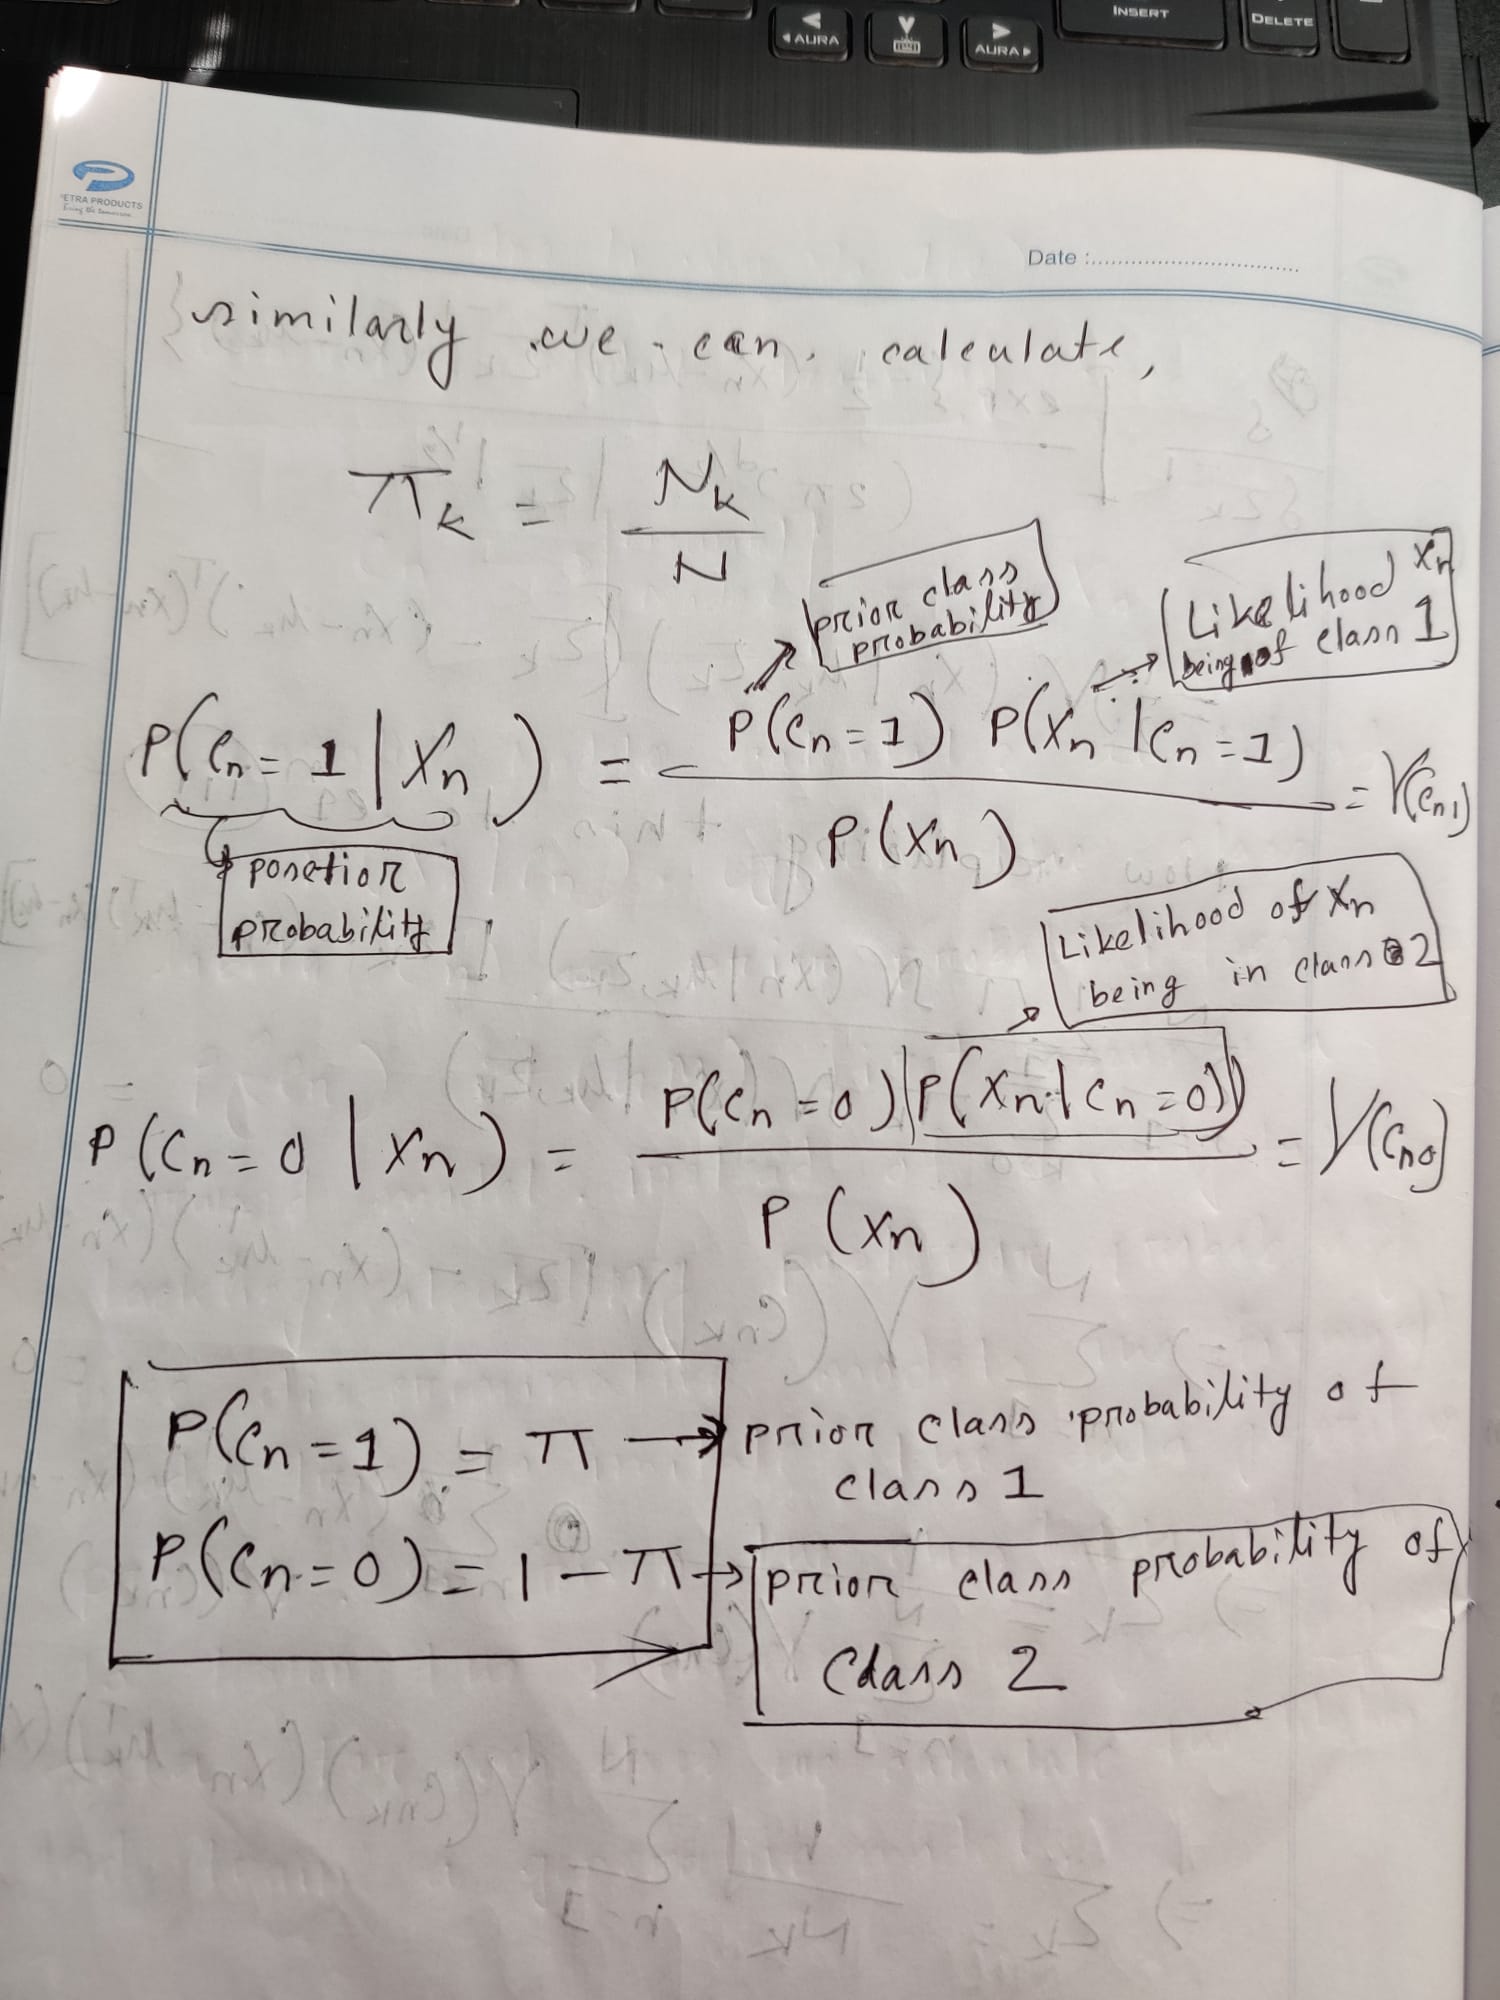 AURA
AURA
INSERT
DELETE
ETRA PRODUCTS
Date :
similarly we can calculate,
π_k = N_k / N
prior class probability
Likelihood X_n being of class 1
P(C_n = 1 | X_n) = P(C_n = 1) P(X_n | C_n = 1) / P(X_n) = γ(C_n1)
posetior probability
Likelihood of X_n being in class 2
P(C_n = 0 | X_n) = P(C_n = 0) P(X_n | C_n = 0) / P(X_n) = γ(C_n0)
P(C_n = 1) = π → prior class probability of
class 1
P(C_n = 0) = 1 - π → prior class probability of
Class 2